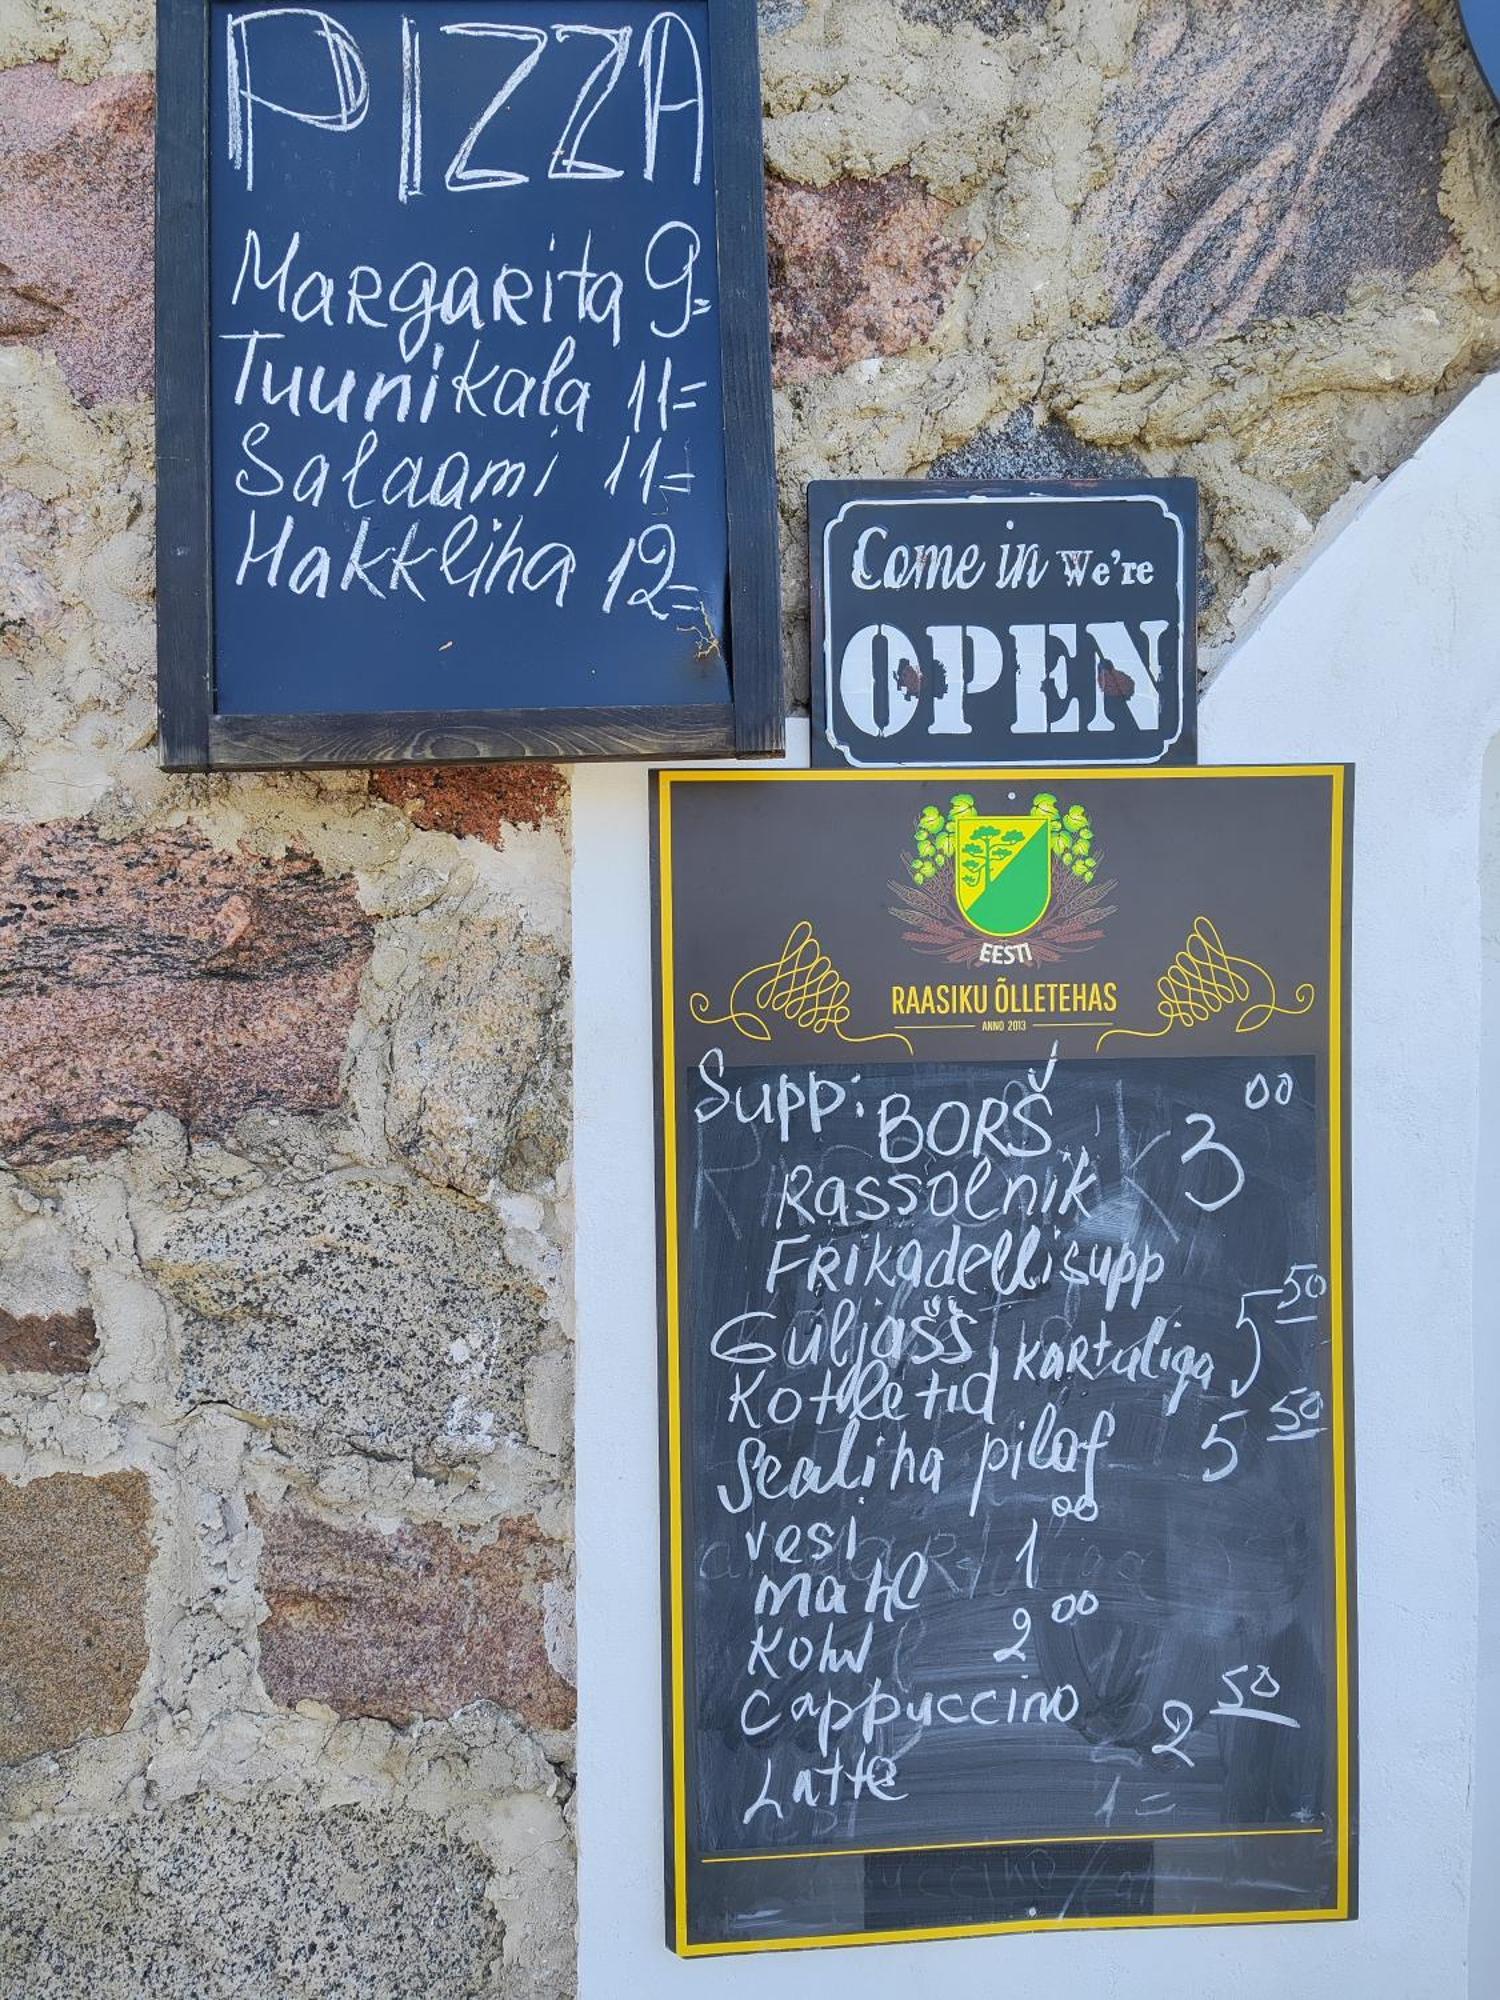 PIZZA
Margarita 9=
Tuunikala 11=
Salaami 11=
Hakkliha 12=
Come in We're
OPEN
EESTI
RAASIKU ÕLLETEHAS
ANNO 2013
Supp: BORŠ 3 00
Rassolnik
Frikadellisupp
Guljašš kartuliga 5 50
Kotletid
Sealiha pilaf 5 50
vesi 1 00
mahl
Kohv 2 00
Cappuccino 2 50
Latte
1=